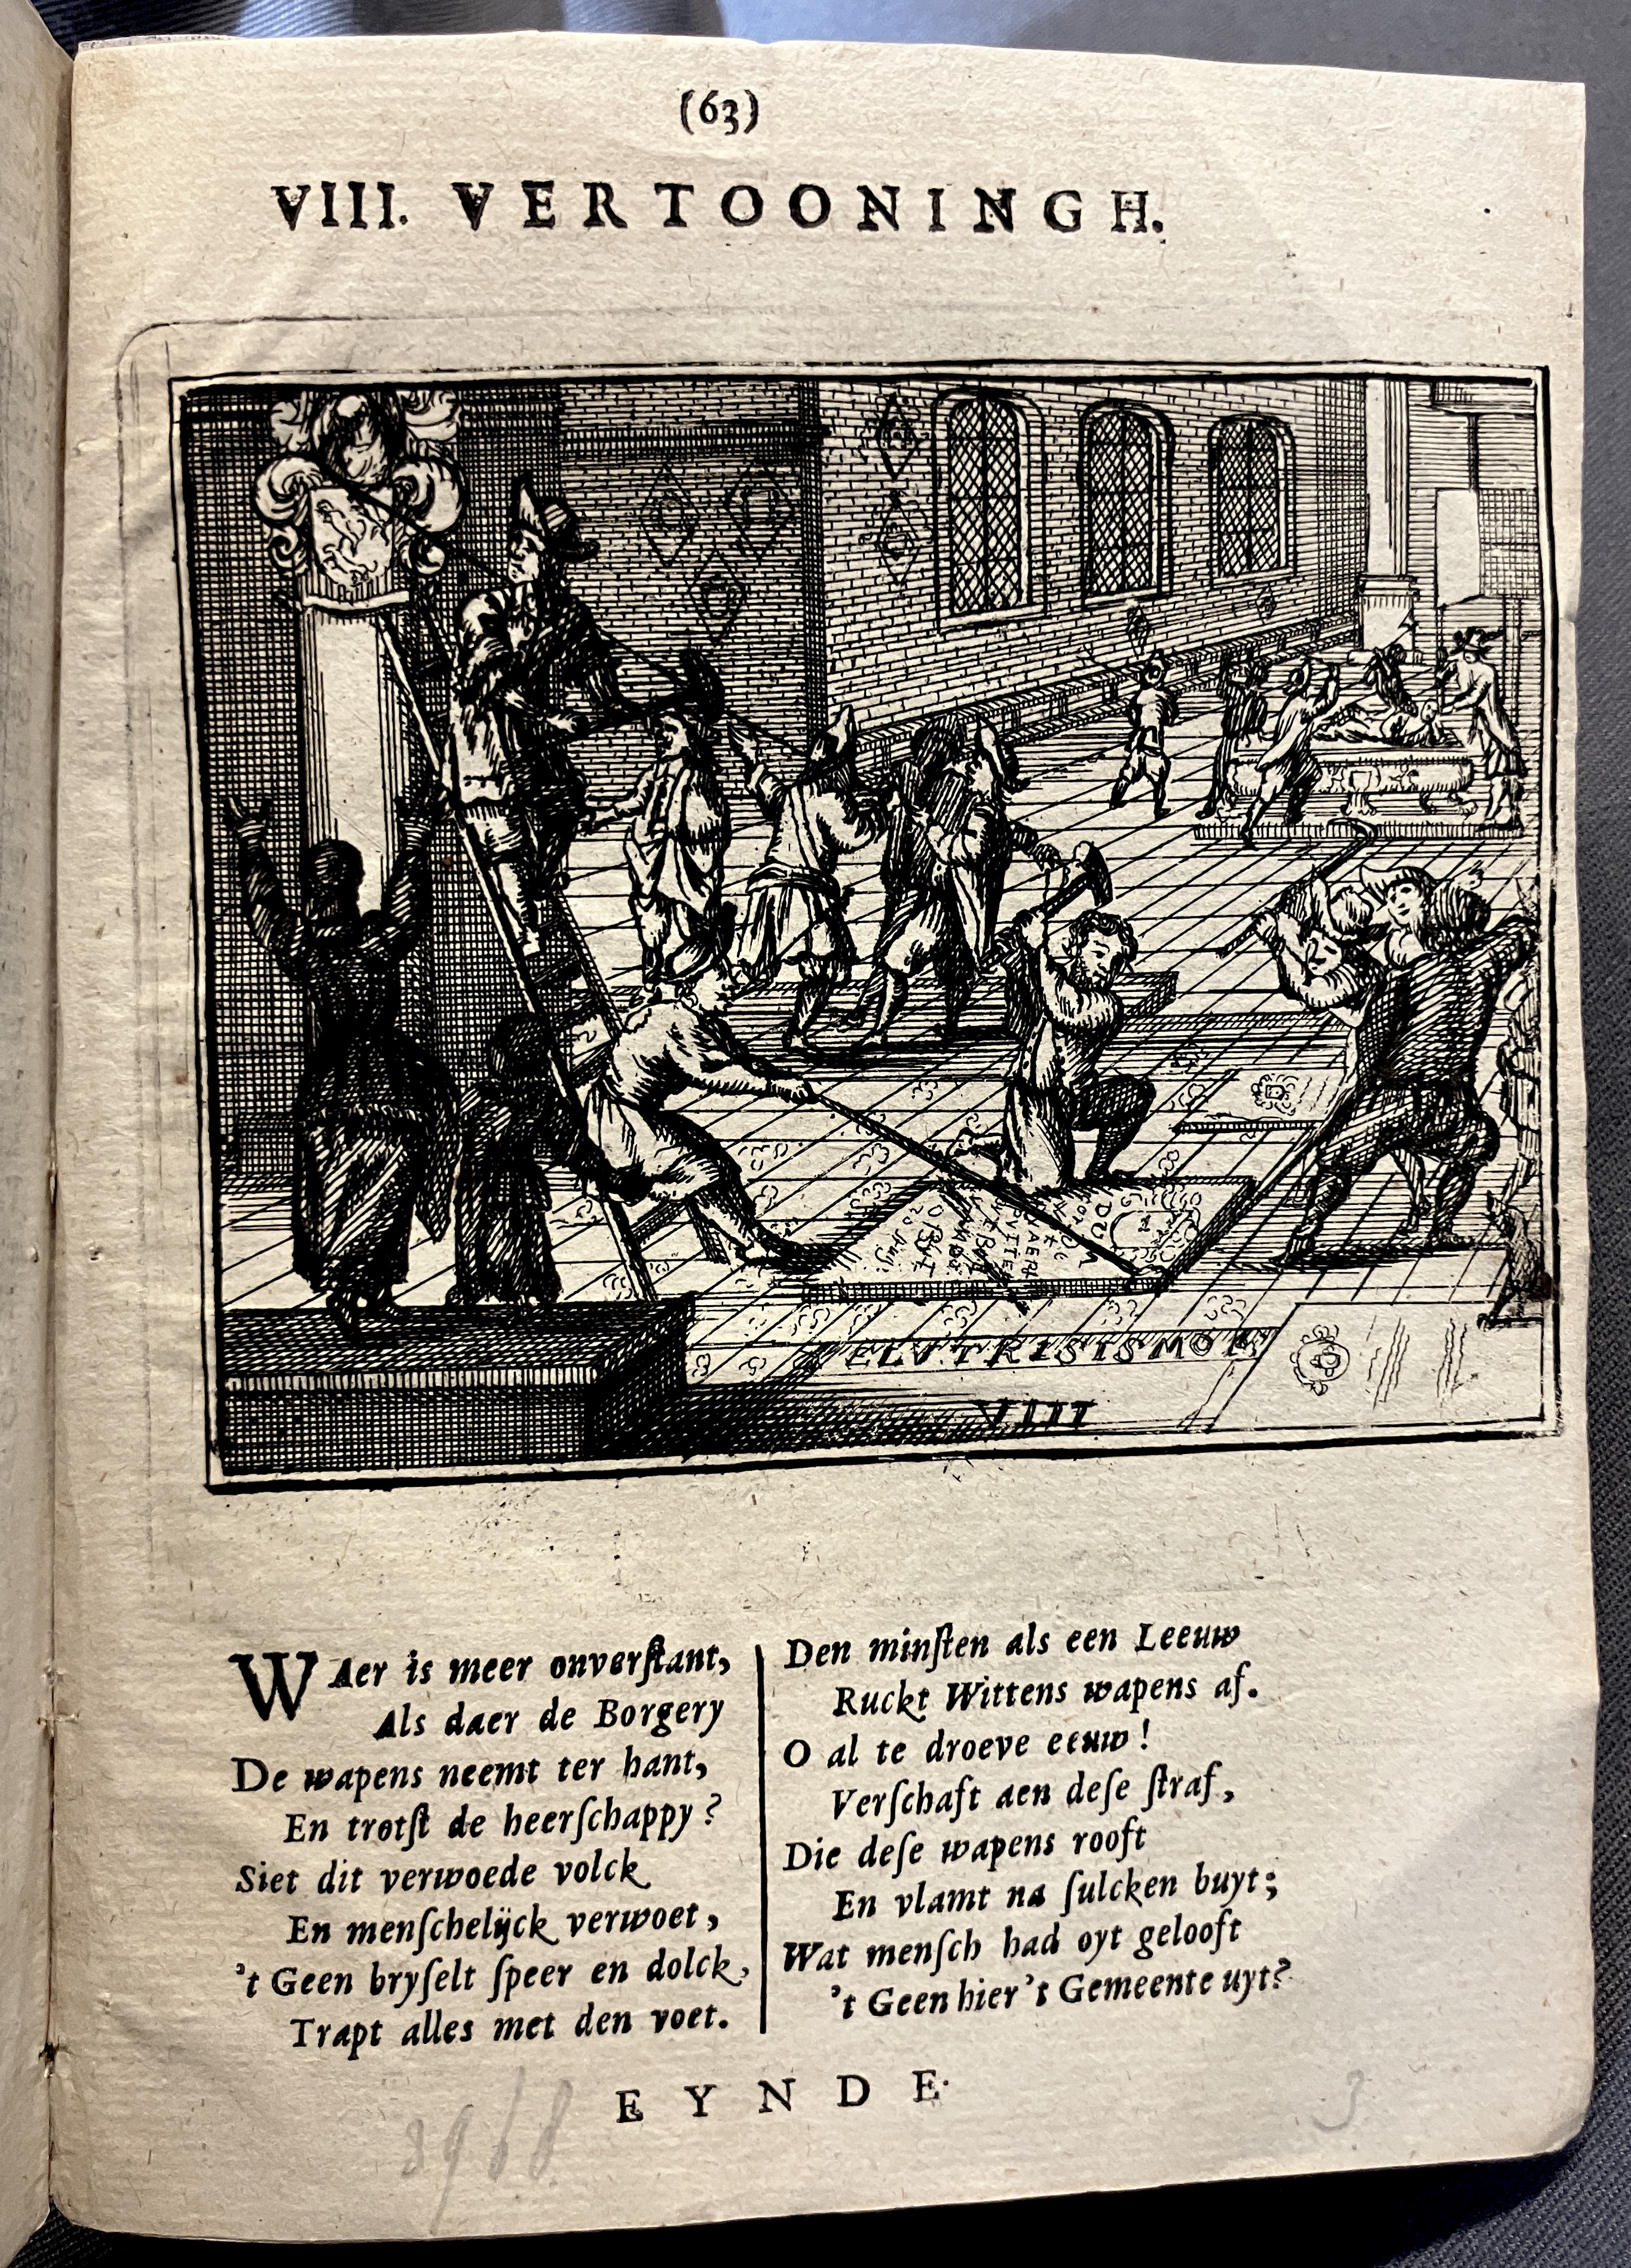 (63)
VIII. VERTOONINGH.
DUM
OBIIT
VIII
WAer is meer onverſtant,
Als daer de Borgery
De wapens neemt ter hant,
En trotſt de heerſchappy?
Siet dit verwoede volck
En menſchelijck verwoet,
't Geen bryſelt ſpeer en dolck,
Trapt alles met den voet.
Den minſten als een Leeuw
Ruckt Wittens wapens af.
O al te droeve eeuw!
Verſchaft aen deſe ſtraf,
Die deſe wapens rooft
En vlamt na ſulcken buyt;
Wat menſch had oyt gelooft
't Geen hier 't Gemeente uyt?
EYNDE.
3968
3